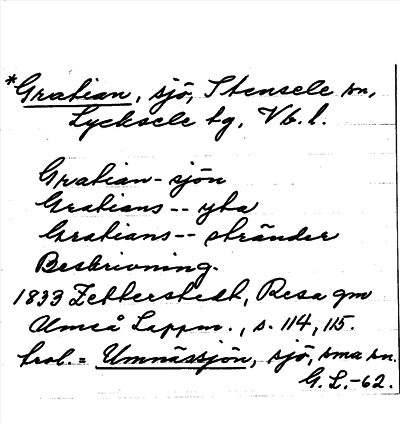 *Gratian, sjö, Stensele sn,
Lycksele tg, Vb. l.
Gratian-sjön
Gratians -- yta
Gratians -- stränder
Beskrivning.
1833 Zetterstedt, Resa gm
Umeå Lappm., s. 114, 115.
trol. = Umnässjön, sjö, sma sn.
G. L. -62.